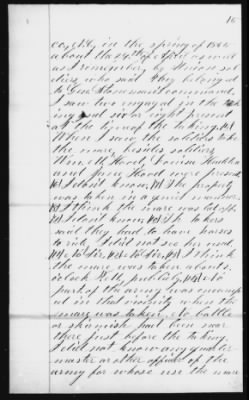 16
County in the spring of 1865
about the 24th of April as well
as I remember by Union sol-
diers, who said they belonged
to Gen. Stoneman's command.
I saw two engaged in the tak-
ing and six or eight present
at the time of the taking.
When I saw the soldiers take
the mare, besides soldiers
Wm. M. Hood, Louisa
and Jane Hood were present.
I dont know, The property
was taken in a general manner.
I think the mare was
I dont know, The takers
said they had to have horses
to ride, I did not see her used,
No Sir, No Sir, I think
the mare was taken about
oclock
part of the army was encamp-
ed in that vicinity when the
mare was taken, no battle
or skirmish had been near
there just before the taking.
I did not know any quarter-
master or other officer of the
army for whose use the mare